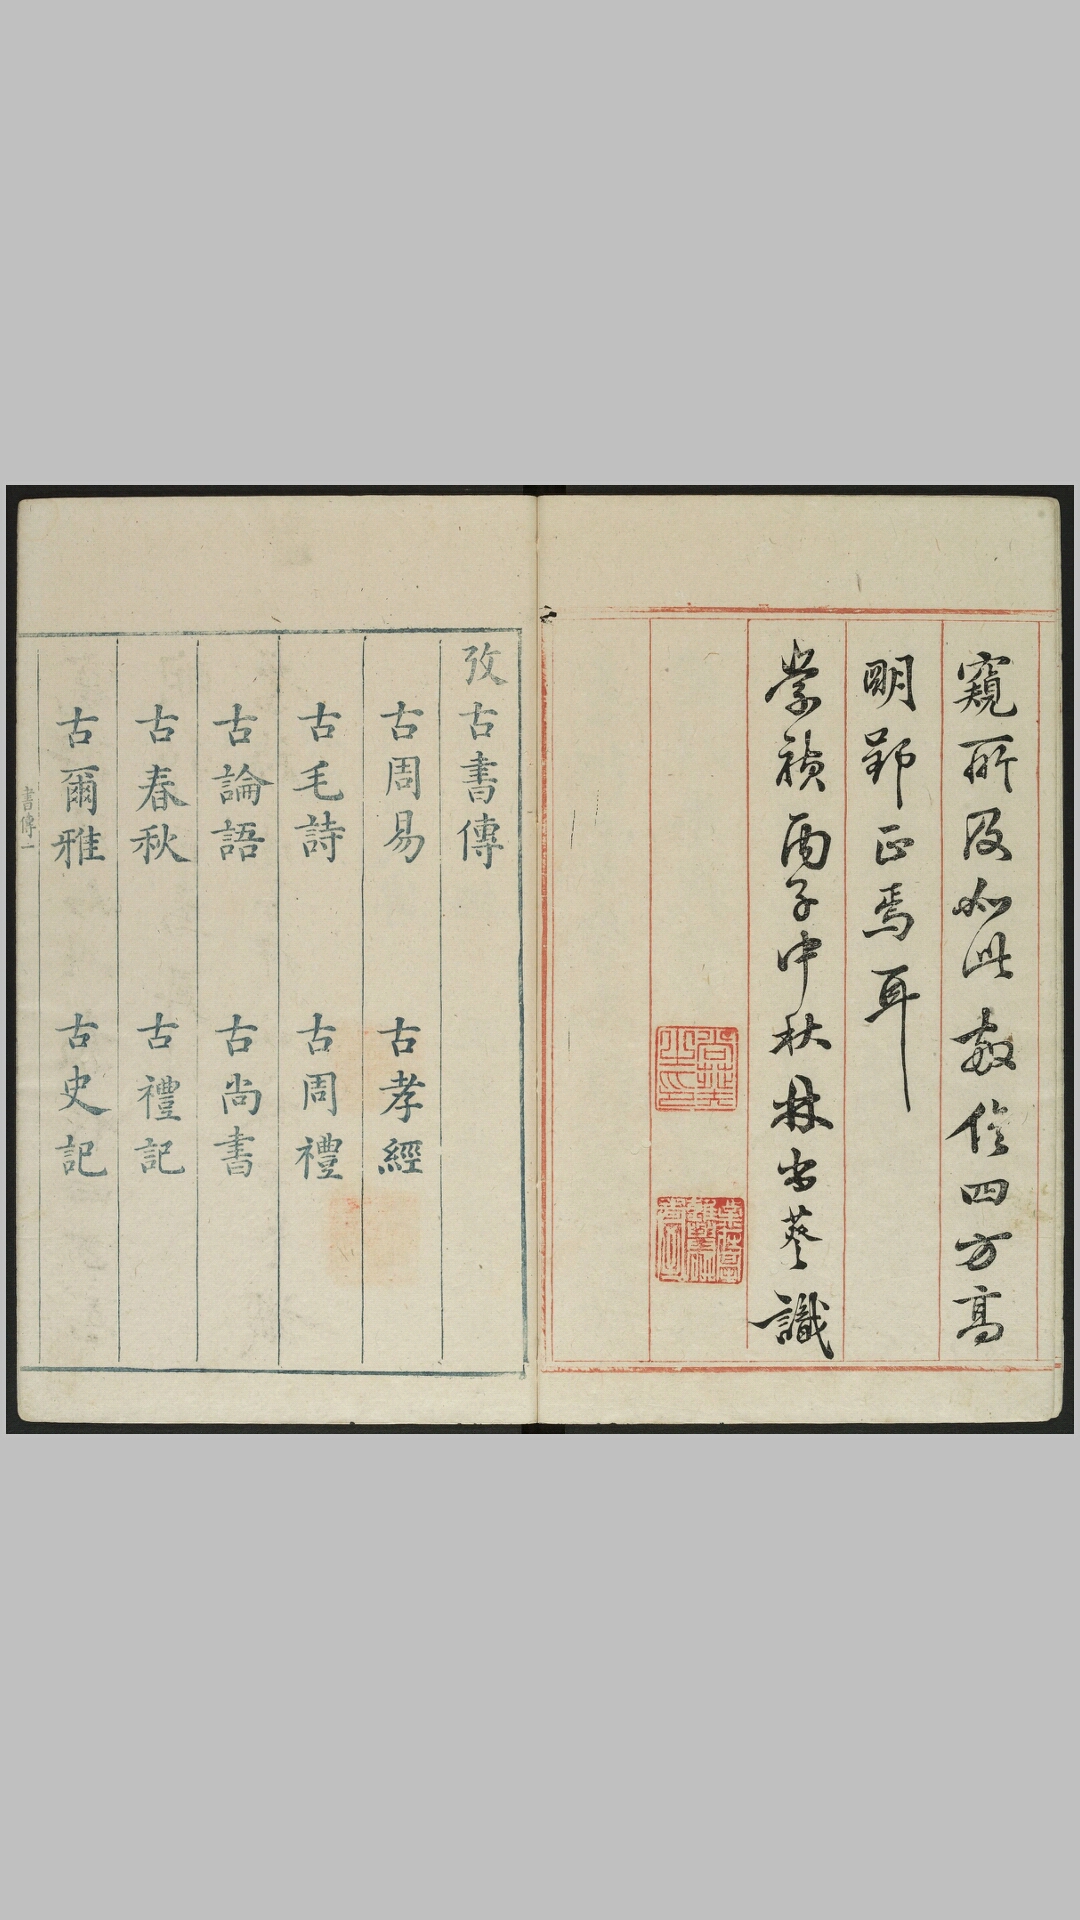 窺所及如此敢俟四方高
明郢正焉耳
崇禎丙子中秋林尚葵識
攷古書傳
古周易 古孝經
古毛詩 古周禮
古論語 古尚書
古春秋 古禮記
古爾雅 古史記
書傳一